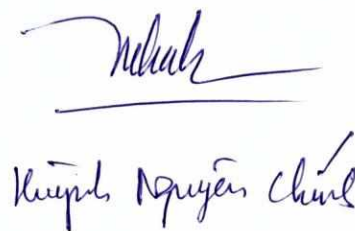 Huỳnh Nguyên Chính